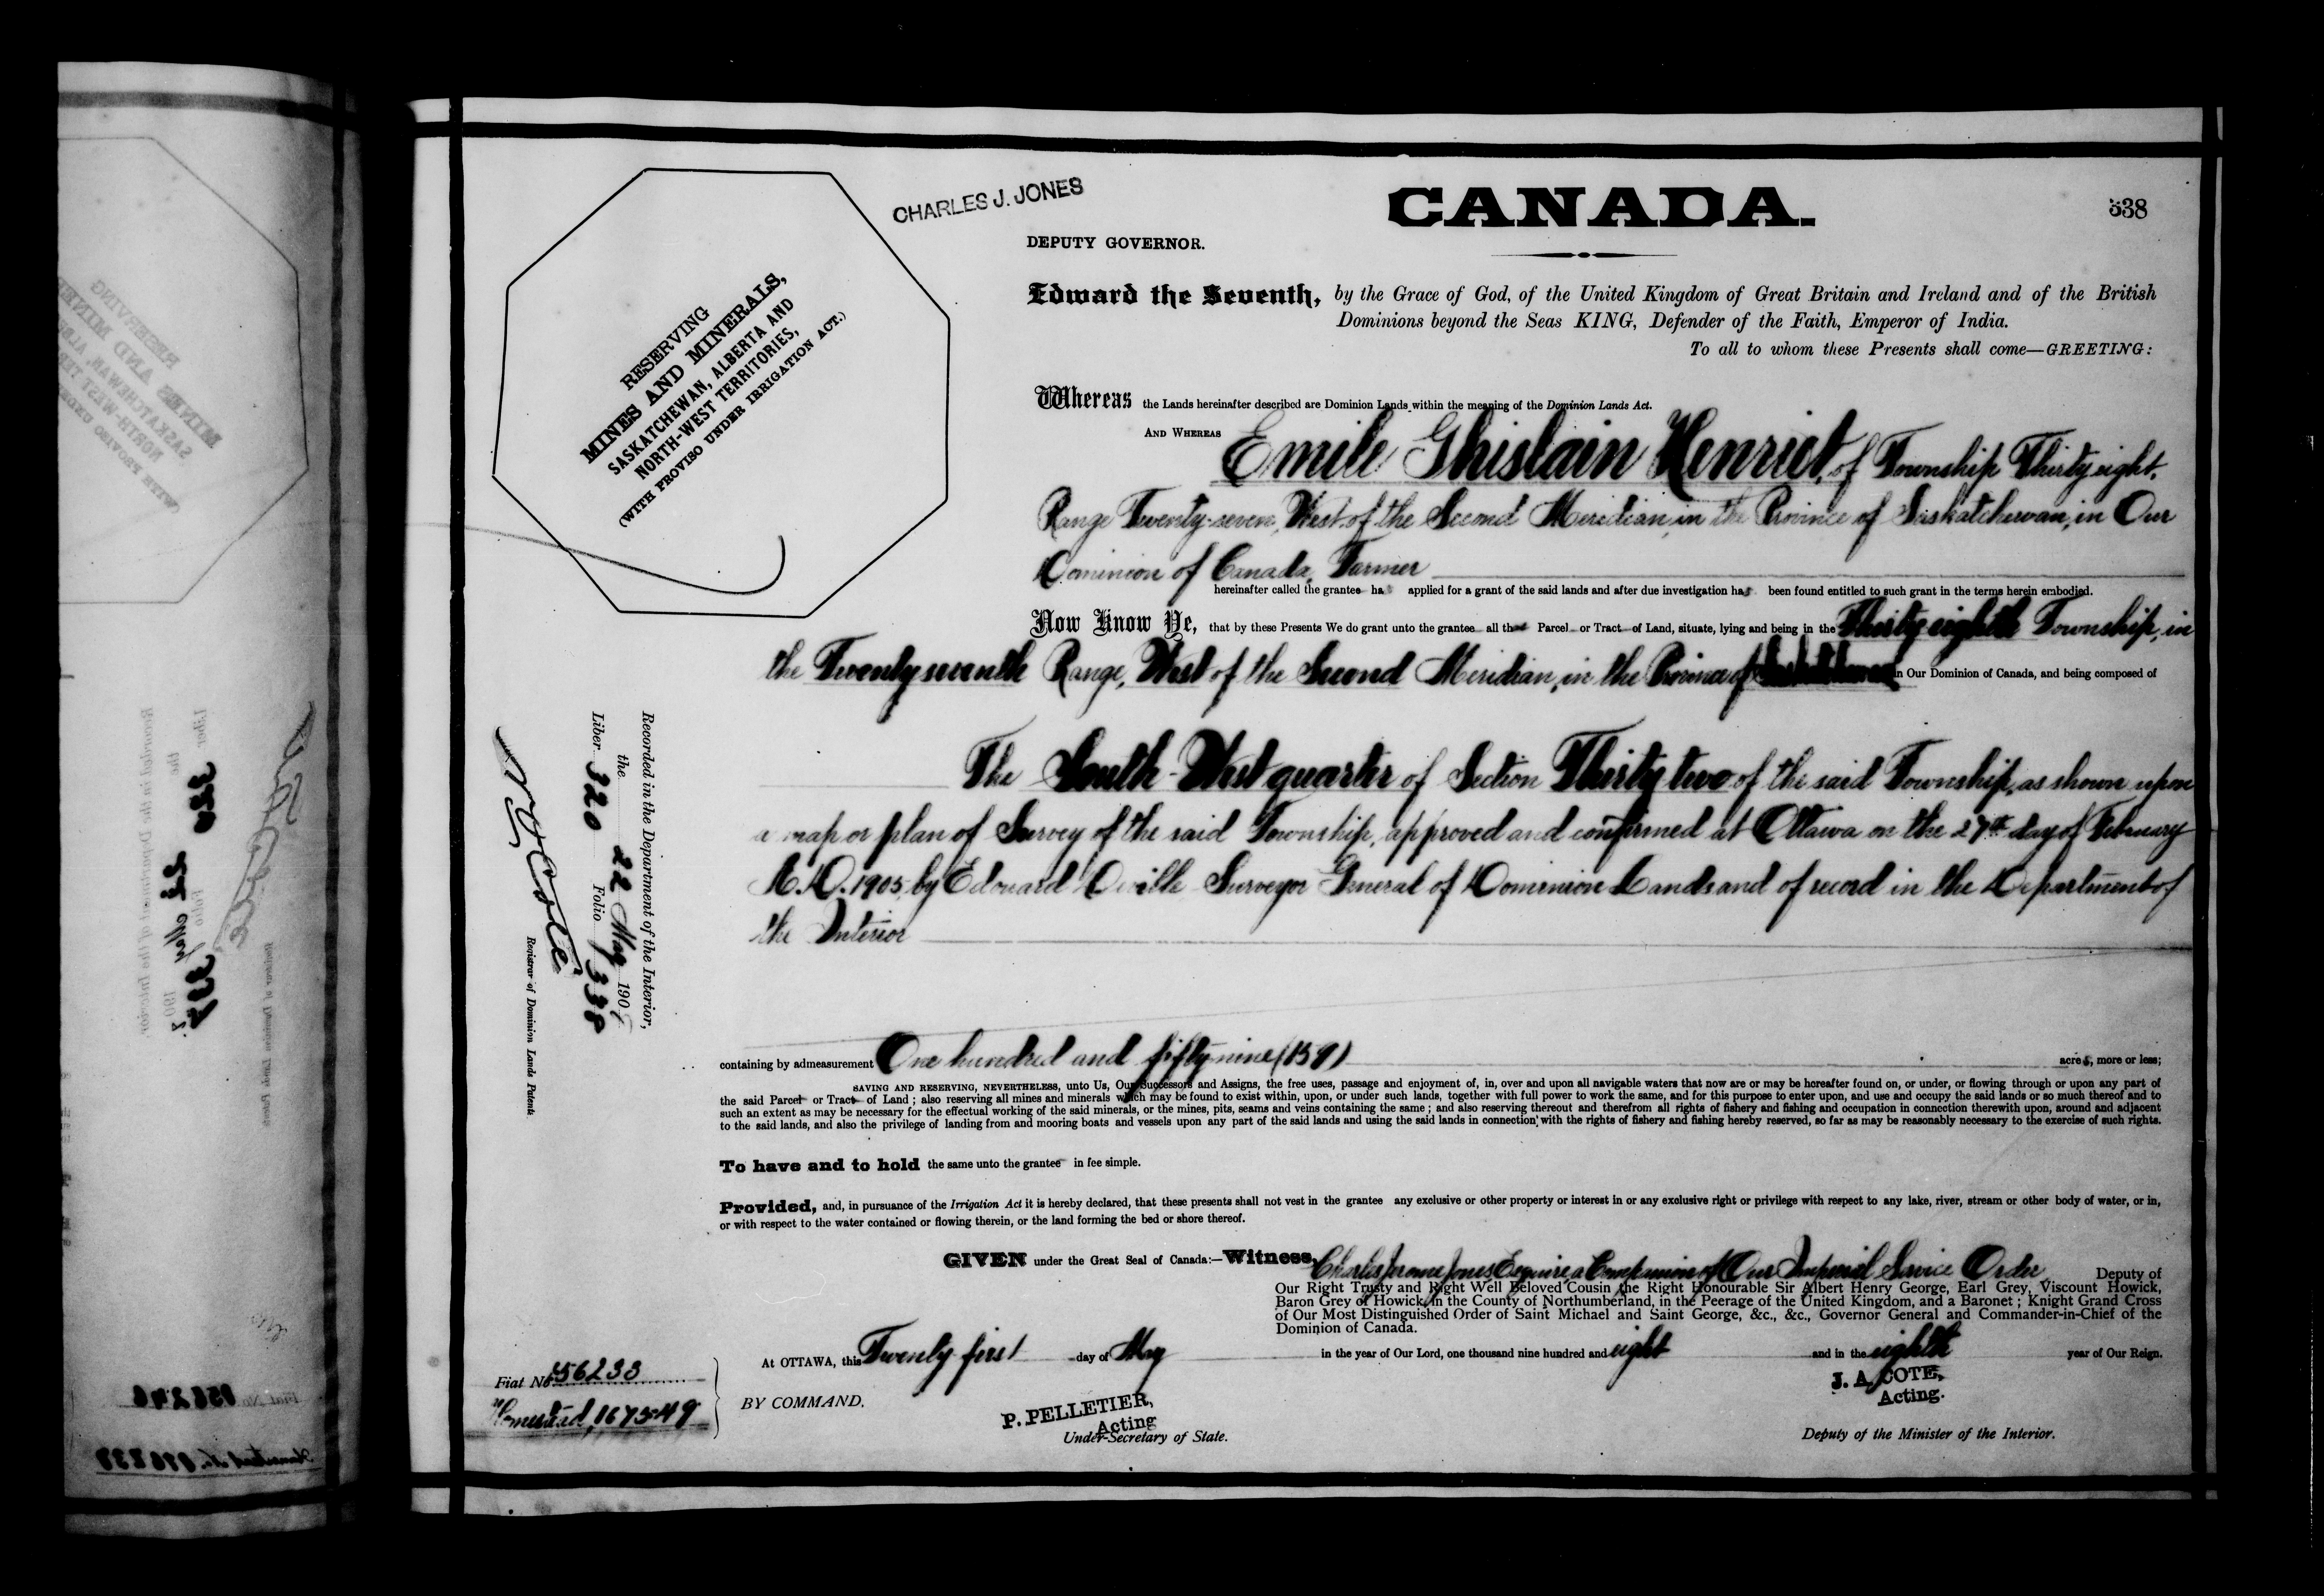 CHARLES J. JONES
CANADA.
338
DEPUTY GOVERNOR.
Edward the Seventh, by the Grace of God, of the United Kingdom of Great Britain and Ireland and of the British
Dominions beyond the Seas KING, Defender of the Faith, Emperor of India.
To all to whom these Presents shall come—GREETING:
RESERVING
MINES AND MINERALS,
SASKATCHEWAN, ALBERTA AND
NORTH-WEST TERRITORIES,
(WITH PROVISO UNDER IRRIGATION ACT.)
Whereas the Lands hereinafter described are Dominion Lands within the meaning of the Dominion Lands Act.
AND WHEREAS Emile Ghislain Henriot, of Township Thirty eight,
Range Twenty-seven, West of the Second Meridian, in the Province of Saskatchewan, in Our
Dominion of Canada, Farmer
hereinafter called the grantee has applied for a grant of the said lands and after due investigation has been found entitled to such grant in the terms herein embodied.
Now Know Ye, that by these Presents We do grant unto the grantee all that Parcel or Tract of Land, situate, lying and being in the Thirty eighth Township, in
the Twenty seventh Range, West of the Second Meridian, in the Province of Saskatchewan in Our Dominion of Canada, and being composed of
The South-West quarter of Section Thirty two of the said Township, as shown upon
a map or plan of Survey of the said Township, approved and confirmed at Ottawa on the 27th day of February
A.D. 1905, by Edouard Deville Surveyor General of Dominion Lands and of record in the Department of
the Interior
containing by admeasurement One hundred and fifty-nine (159) acres, more or less;
SAVING AND RESERVING, NEVERTHELESS, unto Us, Our Successors and Assigns, the free uses, passage and enjoyment of, in, over and upon all navigable waters that now are or may be hereafter found on, or under, or flowing through or upon any part of
the said Parcel or Tract of Land; also reserving all mines and minerals which may be found to exist within, upon, or under such lands, together with full power to work the same, and for this purpose to enter upon, and use and occupy the said lands or so much thereof and to
such an extent as may be necessary for the effectual working of the said minerals, or the mines, pits, seams and veins containing the same; and also reserving thereout and therefrom all rights of fishery and fishing and occupation in connection therewith upon, around and adjacent
to the said lands, and also the privilege of landing from and mooring boats and vessels upon any part of the said lands and using the said lands in connection with the rights of fishery and fishing hereby reserved, so far as may be reasonably necessary to the exercise of such rights.
To have and to hold the same unto the grantee in fee simple.
Provided, and, in pursuance of the Irrigation Act it is hereby declared, that these presents shall not vest in the grantee any exclusive or other property or interest in or any exclusive right or privilege with respect to any lake, river, stream or other body of water, or in,
or with respect to the water contained or flowing therein, or the land forming the bed or shore thereof.
GIVEN under the Great Seal of Canada:—Witness, Charles Jerome Jones Esquire, a Companion of Our Imperial Service Order Deputy of
Our Right Trusty and Right Well Beloved Cousin the Right Honourable Sir Albert Henry George, Earl Grey, Viscount Howick,
Baron Grey of Howick, in the County of Northumberland, in the Peerage of the United Kingdom, and a Baronet; Knight Grand Cross
of Our Most Distinguished Order of Saint Michael and Saint George, &c., &c., Governor General and Commander-in-Chief of the
Dominion of Canada.
At OTTAWA, this Twenty first day of May in the year of Our Lord, one thousand nine hundred and eight and in the eighth year of Our Reign.
BY COMMAND.
P. PELLETIER,
Acting
Under-Secretary of State.
J. A. COTE,
Acting.
Deputy of the Minister of the Interior.
Recorded in the Department of the Interior,
the 22 May 1908
Liber 320 Folio 338
N O Coté
Registrar of Dominion Lands Patents
Fiat No 56233
Homestead, 167549